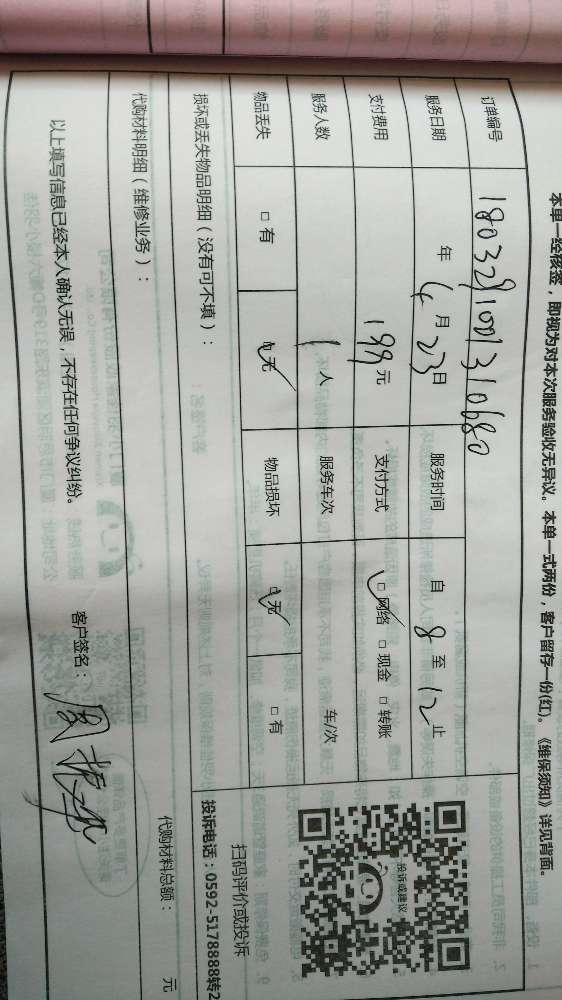 本单一经核签，即视为对本次服务验收无异议。本单一式两份，客户留存一份(红)。《维保须知》详见背面。
订单编号 1803291001310680
服务日期 年 4 月 23 日 服务时间 自 8 至 12 止
支付费用 199 元 支付方式 □ 网络 □ 现金 □ 转账
服务人数 1 人 服务车次 车/次
物品丢失 □ 有 □ 无 物品损坏 □ 无 □ 有
投诉或建议
扫码评价或投诉
投诉电话：0592-5178888转2
损坏或丢失物品明细（没有可不填）：
代购材料明细（维修业务）： 代购材料总额： 元
以上填写信息已经本人确认无误，不存在任何争议纠纷。 客户签名：周